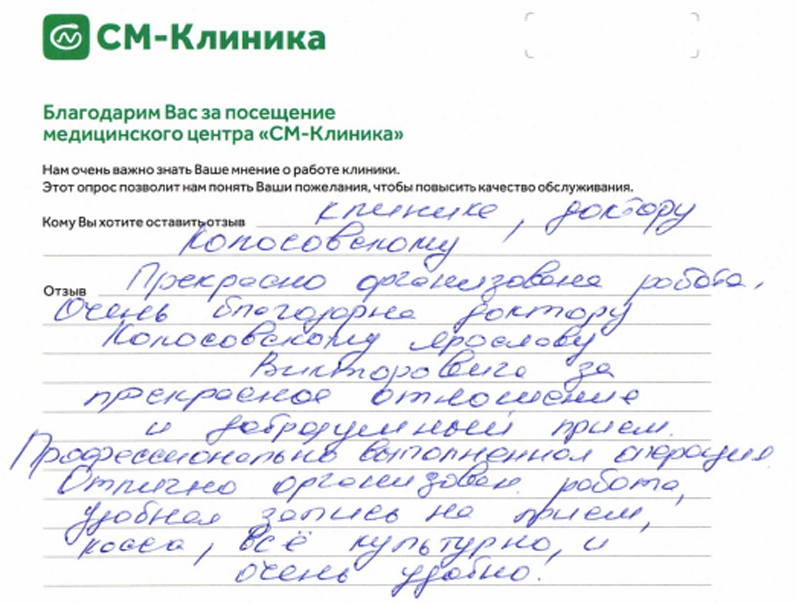 СМ-Клиника
Благодарим Вас за посещение
медицинского центра «СМ-Клиника»
Нам очень важно знать Ваше мнение о работе клиники.
Этот опрос позволит нам понять Ваши пожелания, чтобы повысить качество обслуживания.
Кому Вы хотите оставить отзыв клинике, доктору
Колосовскому
Отзыв Прекрасно организована работа,
Очень благодарна доктору
Колосовскому Ярославу
Викторовичу за
прекрасное отношение
и добродушный прием.
Профессионально выполненная операция
Отлично организован. работа,
удобная запись на прием,
касса, всё культурно, и
очень удобно.